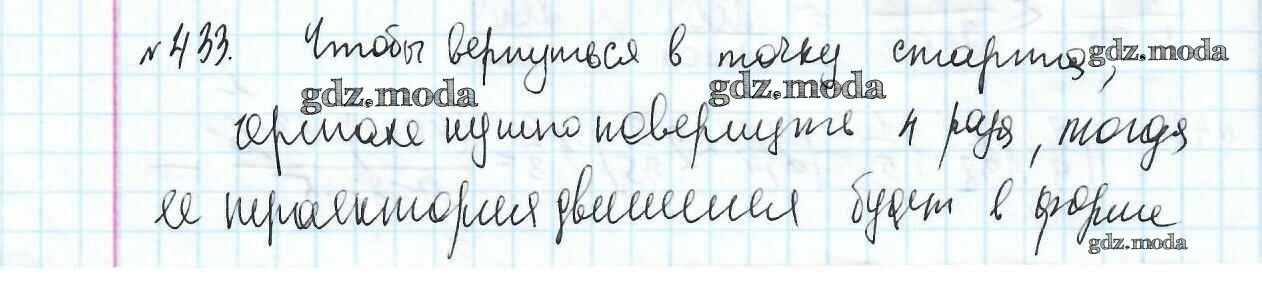 №433. Чтобы вернуться в точку старта,
gdz.moda
gdz.moda
gdz.moda
черпахе нужно повернуть 4 раза, тогда
ее траектория движения будет в форме
gdz.moda